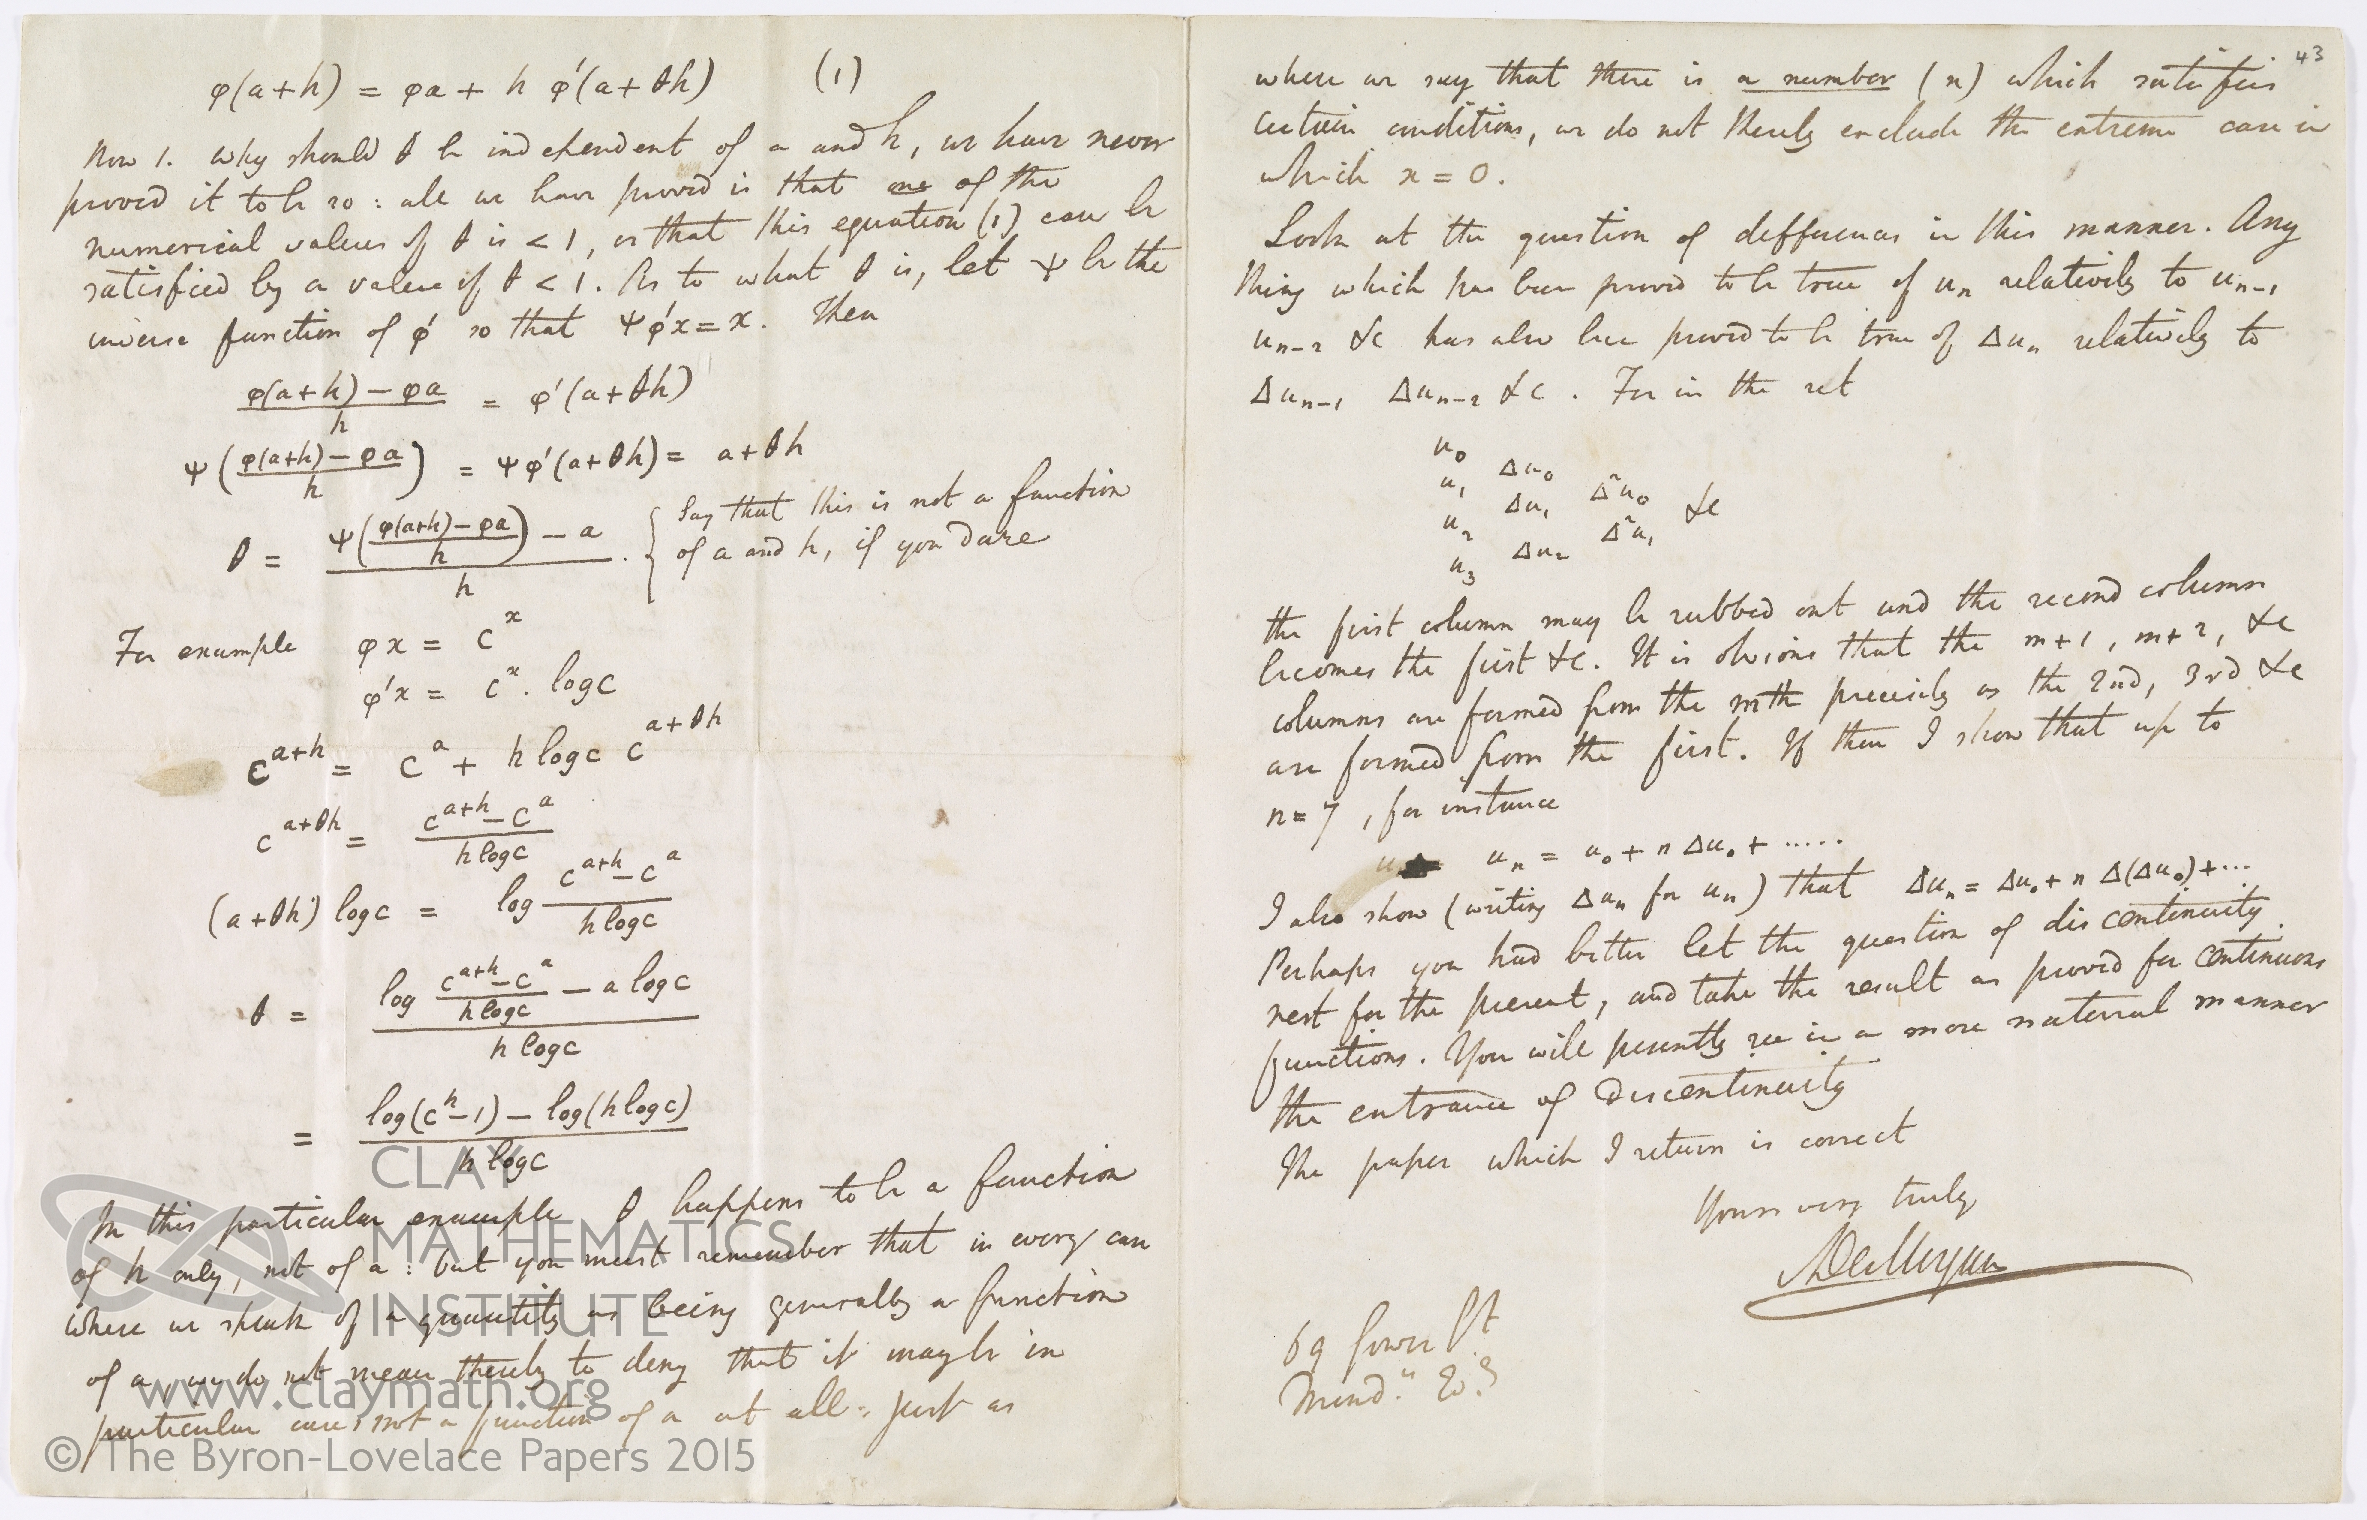 φ(a+h) = φa + h φ′(a+θh) (1)
Now 1. Why should θ be independent of a and h, we have never
proved it to be so : all we have proved is that one of the
numerical values of θ is < 1, or that this equation (1) can be
satisfied by a value of θ < 1. As to what θ is, let ψ be the
inverse function of φ′ so that ψφ′x = x. Then
φ(a+h) − φa / h = φ′(a+θh)
ψ(φ(a+h) − φa / h) = ψφ′(a+θh) = a+θh
θ = ψ(φ(a+h) − φa / h) − a / h . { Say that this is not a function
of a and h, if you dare
For example φx = c^x
φ′x = c^x . log c
c^{a+h} = c^a + h log c c^{a+θh}
c^{a+θh} = c^{a+h} − c^a / h log c
(a+θh) log c = log c^{a+h} − c^a / h log c
θ = log (c^{a+h} − c^a / h log c) − a log c / h log c
= log(c^h − 1) − log(h log c) / h log c
In this particular example θ happens to be a function
of h only, not of a : but you must remember that in every case
where we speak of a quantity as being generally a function
of a, we do not mean thereby to deny that it may be in
particular cases not a function of a at all : just as
43
where we say that there is a number (x) which satisfies
certain conditions, we do not thereby exclude the extreme case in
which x = 0.
Look at the question of differences in this manner. Any
thing which has been proved to be true of u_n relatively to u_{n−1}
u_{n−2} &c has also been proved to be true of Δu_n relatively to
Δu_{n−1} Δu_{n−2} &c . For in the set
u_0
Δu_0
u_1 Δ²u_0
Δu_1 &c
u_2 Δ²u_1
Δu_2
u_3
the first column may be rubbed out and the second column
becomes the first &c. It is obvious that the m+1, m+2, &c
columns are formed from the mth precisely as the 2nd, 3rd &c
are formed from the first. If then I show that up to
n = 7, for instance
u_n = u_0 + n Δu_0 + .....
I also show (writing Δu_n for u_n) that Δu_n = Δu_0 + n Δ(Δu_0) + ...
Perhaps you had better let the question of discontinuity
rest for the present, and take the result as proved for continuous
functions. You will presently see in a more natural manner
the entrance of discontinuity
The paper which I return is correct
Yours very truly
ADeMorgan
69 Gower St.
CLAY
MATHEMATICS
INSTITUTE
www.claymath.org
© The Byron-Lovelace Papers 2015